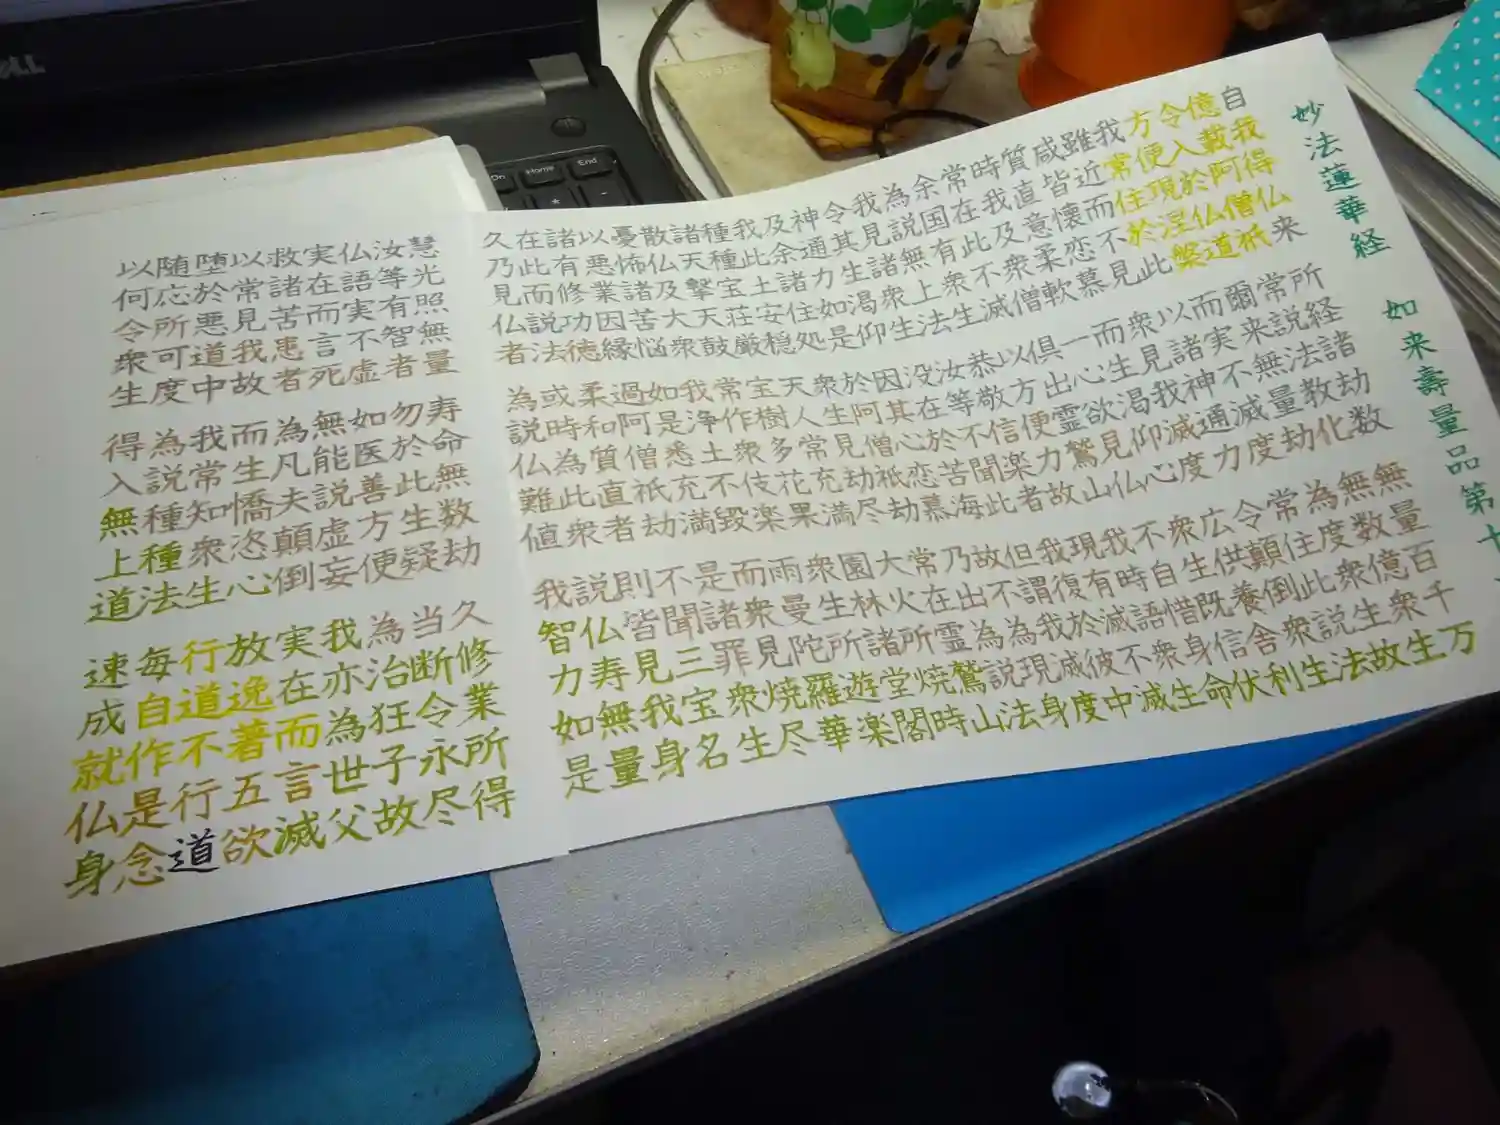 妙法蓮華経 如来壽量品第十
自我得仏来 所経諸劫数 無量百千万
億載阿僧祇 常説法教化 無数億衆生
令入於仏道 爾来無量劫 為度衆生故
方便現涅槃 而実不滅度 常住此説法
我常住於此 以諸神通力 令顛倒衆生
雖近而不見 衆見我滅度 広供養舎利
咸皆懐恋慕 而生渇仰心 衆生既信伏
質直意柔軟 一心欲見仏 不自惜身命
時我及衆僧 俱出霊鷲山 我時語衆生
常在此不滅 以方便力故 現有滅不滅
余国有衆生 恭敬信楽者 我復於彼中
為説無上法 汝等不聞此 但謂我滅度
我見諸衆生 没在於苦海 故不為現身
令其生渇仰 因其心恋慕 乃出為説法
神通力如是 於阿僧祇劫 常在霊鷲山
及余諸住処 衆生見劫尽 大火所焼時
我此土安穏 天人常充満 園林諸堂閣
種種宝荘厳 宝樹多花果 衆生所遊楽
諸天撃天鼓 常作衆伎楽 雨曼陀羅華
散仏及大衆 我浄土不毀 而衆見焼尽
憂怖諸苦悩 如是悉充満 是諸罪衆生
以悪業因縁 過阿僧祇劫 不聞三宝名
諸有修功徳 柔和質直者 則皆見我身
在此而説法 或時為此衆 説仏寿無量
久乃見仏者 為説仏難値 我智力如是
慧光照無量 寿命無数劫 久修業所得
汝等有智者 勿於此生疑 当断令永尽
仏語実不虚 如医善方便 為治狂子故
実在而言死 無能説虚妄 我亦為世父
救諸苦患者 為凡夫顛倒 実在而言滅
以常見我故 而生憍恣心 放逸著五欲
堕於悪道中 我常知衆生 行道不行道
随応所可度 為説種種法 毎自作是念
以何令衆生 得入無上道 速成就仏身
DELL
Home
End